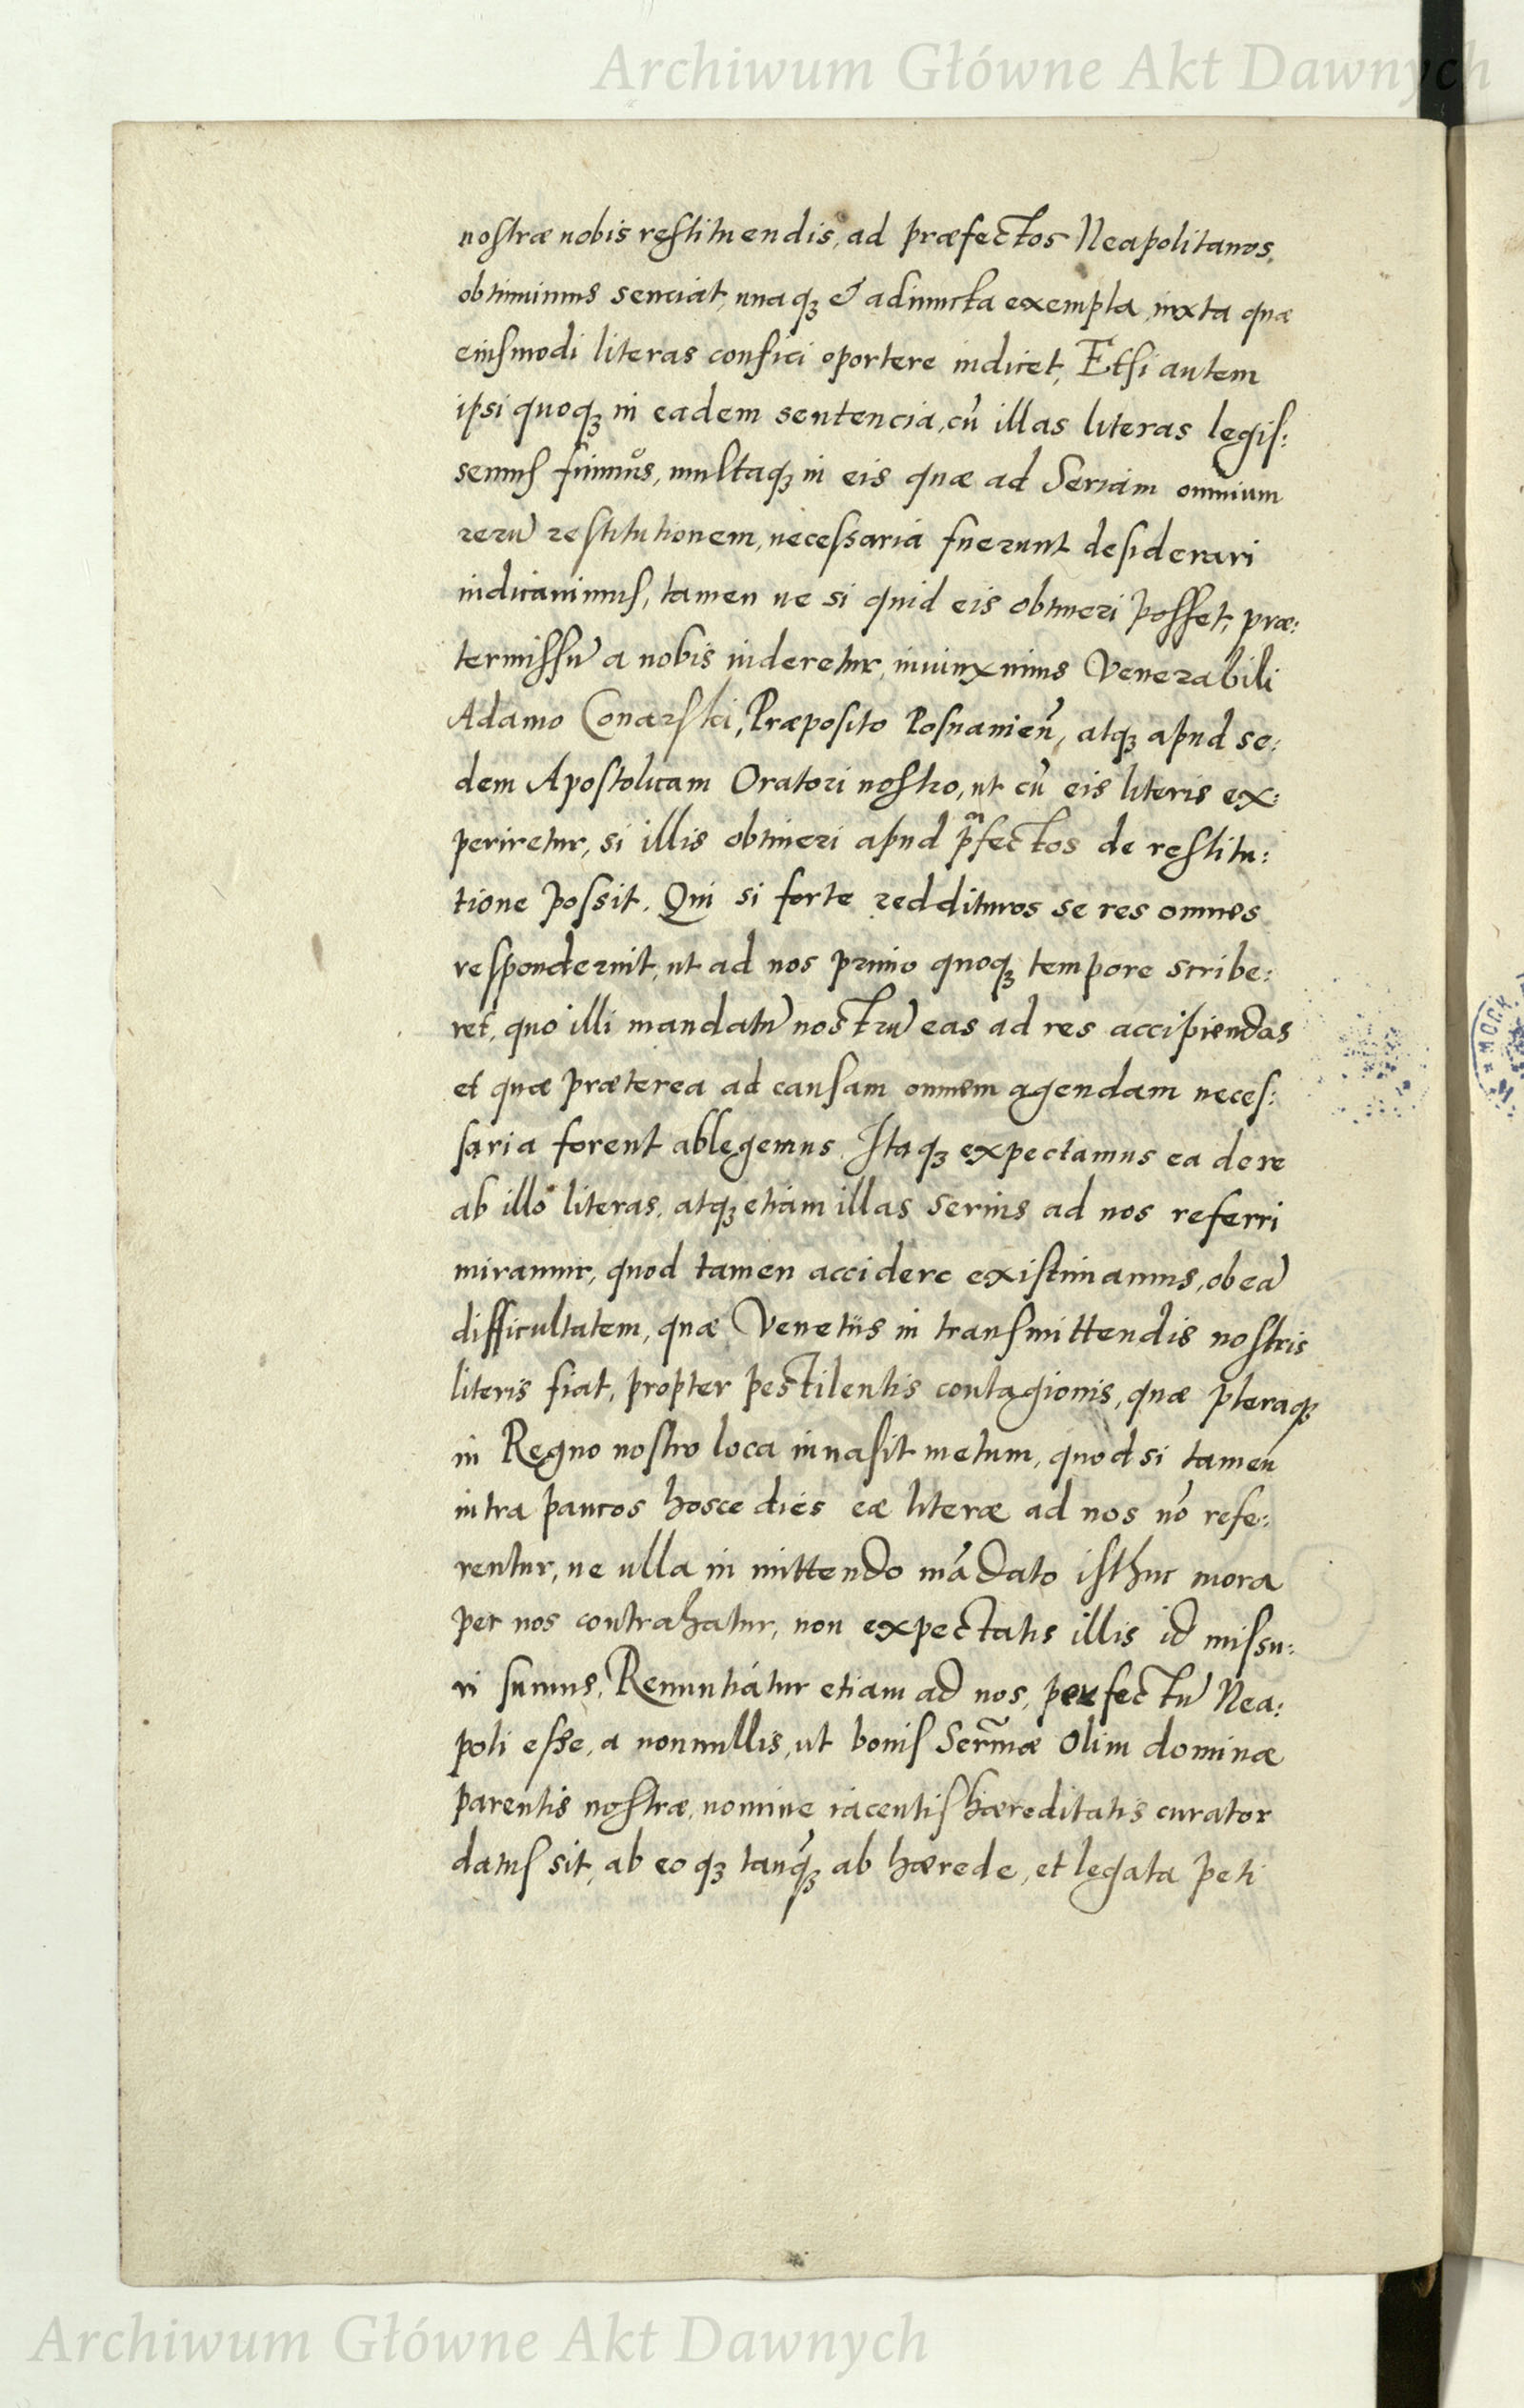 Archiwum Główne Akt Dawnych
nostræ nobis restituendis, ad præfectos Neapolitanos,
obtinuimus senciat, unaqꝫ & adiuncta exempla, iuxta quæ
eiusmodi literas confici oportere iudicet, Etsi autem
ipsi quoqꝫ in eadem sentencia, cũ illas literas legis:
semus fuimus, multaqꝫ in eis quæ ad Seriam omnium
rerũ restitutionem, necessaria fuerunt desiderari
iudicauimus, tamen ne si quid eis obtineri posset, præ:
termissũ a nobis uideretur, iniunximus Venerabili
Adamo Conarski, Præposito Posnanieñ, atqꝫ apud se:
dem Apostolicam Oratori nostro, ut cũ eis literis ex:
periretur, si illis obtineri apud pͣfectos de restitu:
tione possit. Qui si forte reddituros se res omnes
responderint, ut ad nos primo quoqꝫ tempore scribe:
ret, quo illi mandatũ nostrũ eas ad res accipiendas
et quæ præterea ad causam omnem agendam neces:
saria forent ablegemus. Itaqꝫ expectamus ea de re
ab illo literas, atqꝫ etiam illas serius ad nos referri
miramur, quod tamen accidere existimamus, ob eã
difficultatem, quæ Venetiis in transmittendis nostris
literis fiat, propter pestilentis contagionis, quæ pleraqꝫ
in Regno nostro loca inuasit metum, quod si tamen
intra paucos hosce dies eæ literæ ad nos nõ refe:
rentur, ne ulla in mittendo mãdato isthuc mora
per nos contrahatur, non expectatis illis id missu:
ri sumus, Renuntiátur etiam ad nos, perfectũ Nea:
poli esse, a nonnullis, ut bonis Serm̃æ olim dominæ
parentis nostræ, nomine iacentis hæreditatis curator
datus sit, ab eoqꝫ tanq̃ꝫ ab hærede, et legata peti
Archiwum Główne Akt Dawnych